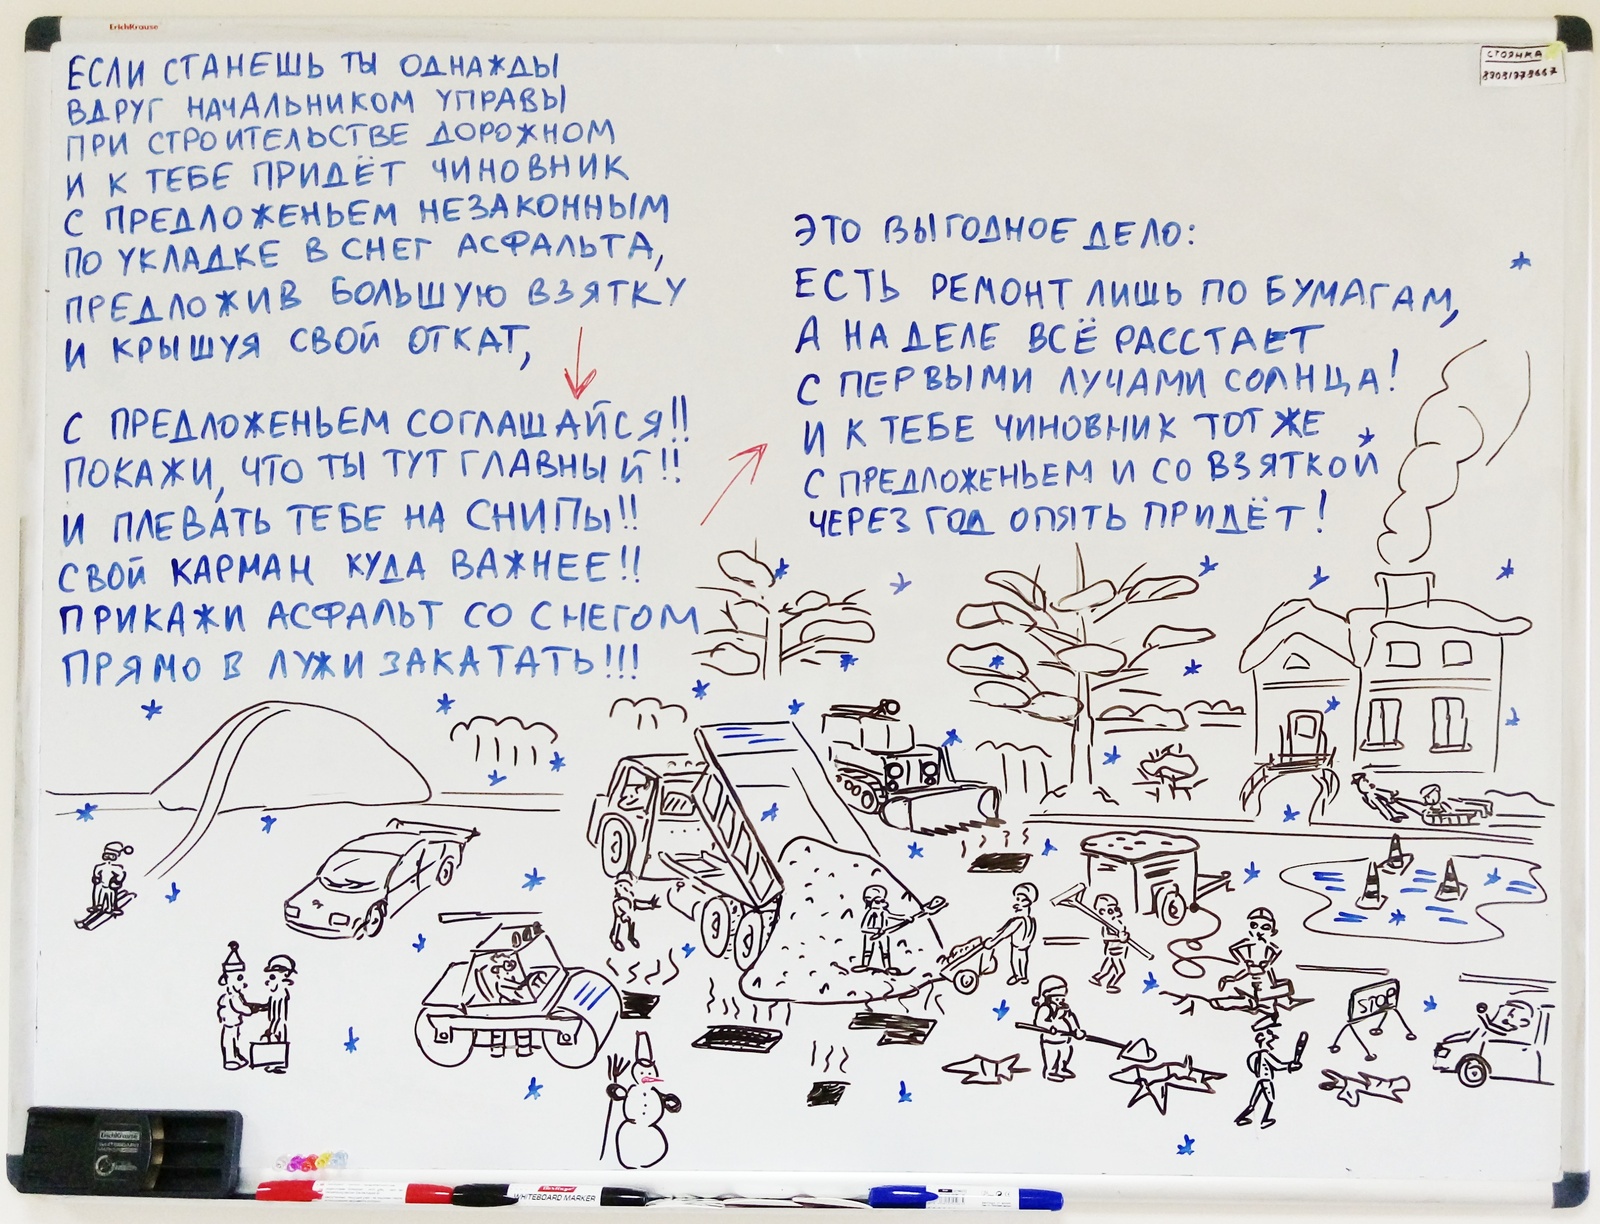 ErichKrause
ЕСЛИ СТАНЕШЬ ТЫ ОДНАЖДЫ
ВДРУГ НАЧАЛЬНИКОМ УПРАВЫ
ПРИ СТРОИТЕЛЬСТВЕ ДОРОЖНОМ
И К ТЕБЕ ПРИДЁТ ЧИНОВНИК
С ПРЕДЛОЖЕНЬЕМ НЕЗАКОННЫМ
ПО УКЛАДКЕ В СНЕГ АСФАЛЬТА,
ПРЕДЛОЖИВ БОЛЬШУЮ ВЗЯТКУ
И КРЫШУЯ СВОЙ ОТКАТ,
С ПРЕДЛОЖЕНЬЕМ СОГЛАШАЙСЯ!!
ПОКАЖИ, ЧТО ТЫ ТУТ ГЛАВНЫЙ!!
И ПЛЕВАТЬ ТЕБЕ НА СНИПЫ!!
СВОЙ КАРМАН КУДА ВАЖНЕЕ!!
ПРИКАЖИ АСФАЛЬТ СО СНЕГОМ
ПРЯМО В ЛУЖИ ЗАКАТАТЬ!!!
СТОЯНКА
ЭТО ВЫГОДНОЕ ДЕЛО:
ЕСТЬ РЕМОНТ ЛИШЬ ПО БУМАГАМ,
А НА ДЕЛЕ ВСЁ РАССТАЕТ
С ПЕРВЫМИ ЛУЧАМИ СОЛНЦА!
И К ТЕБЕ ЧИНОВНИК ТОТ ЖЕ
С ПРЕДЛОЖЕНЬЕМ И СО ВЗЯТКОЙ
ЧЕРЕЗ ГОД ОПЯТЬ ПРИДЁТ!
STOP
ErichKrause
WHITEBOARD MARKER